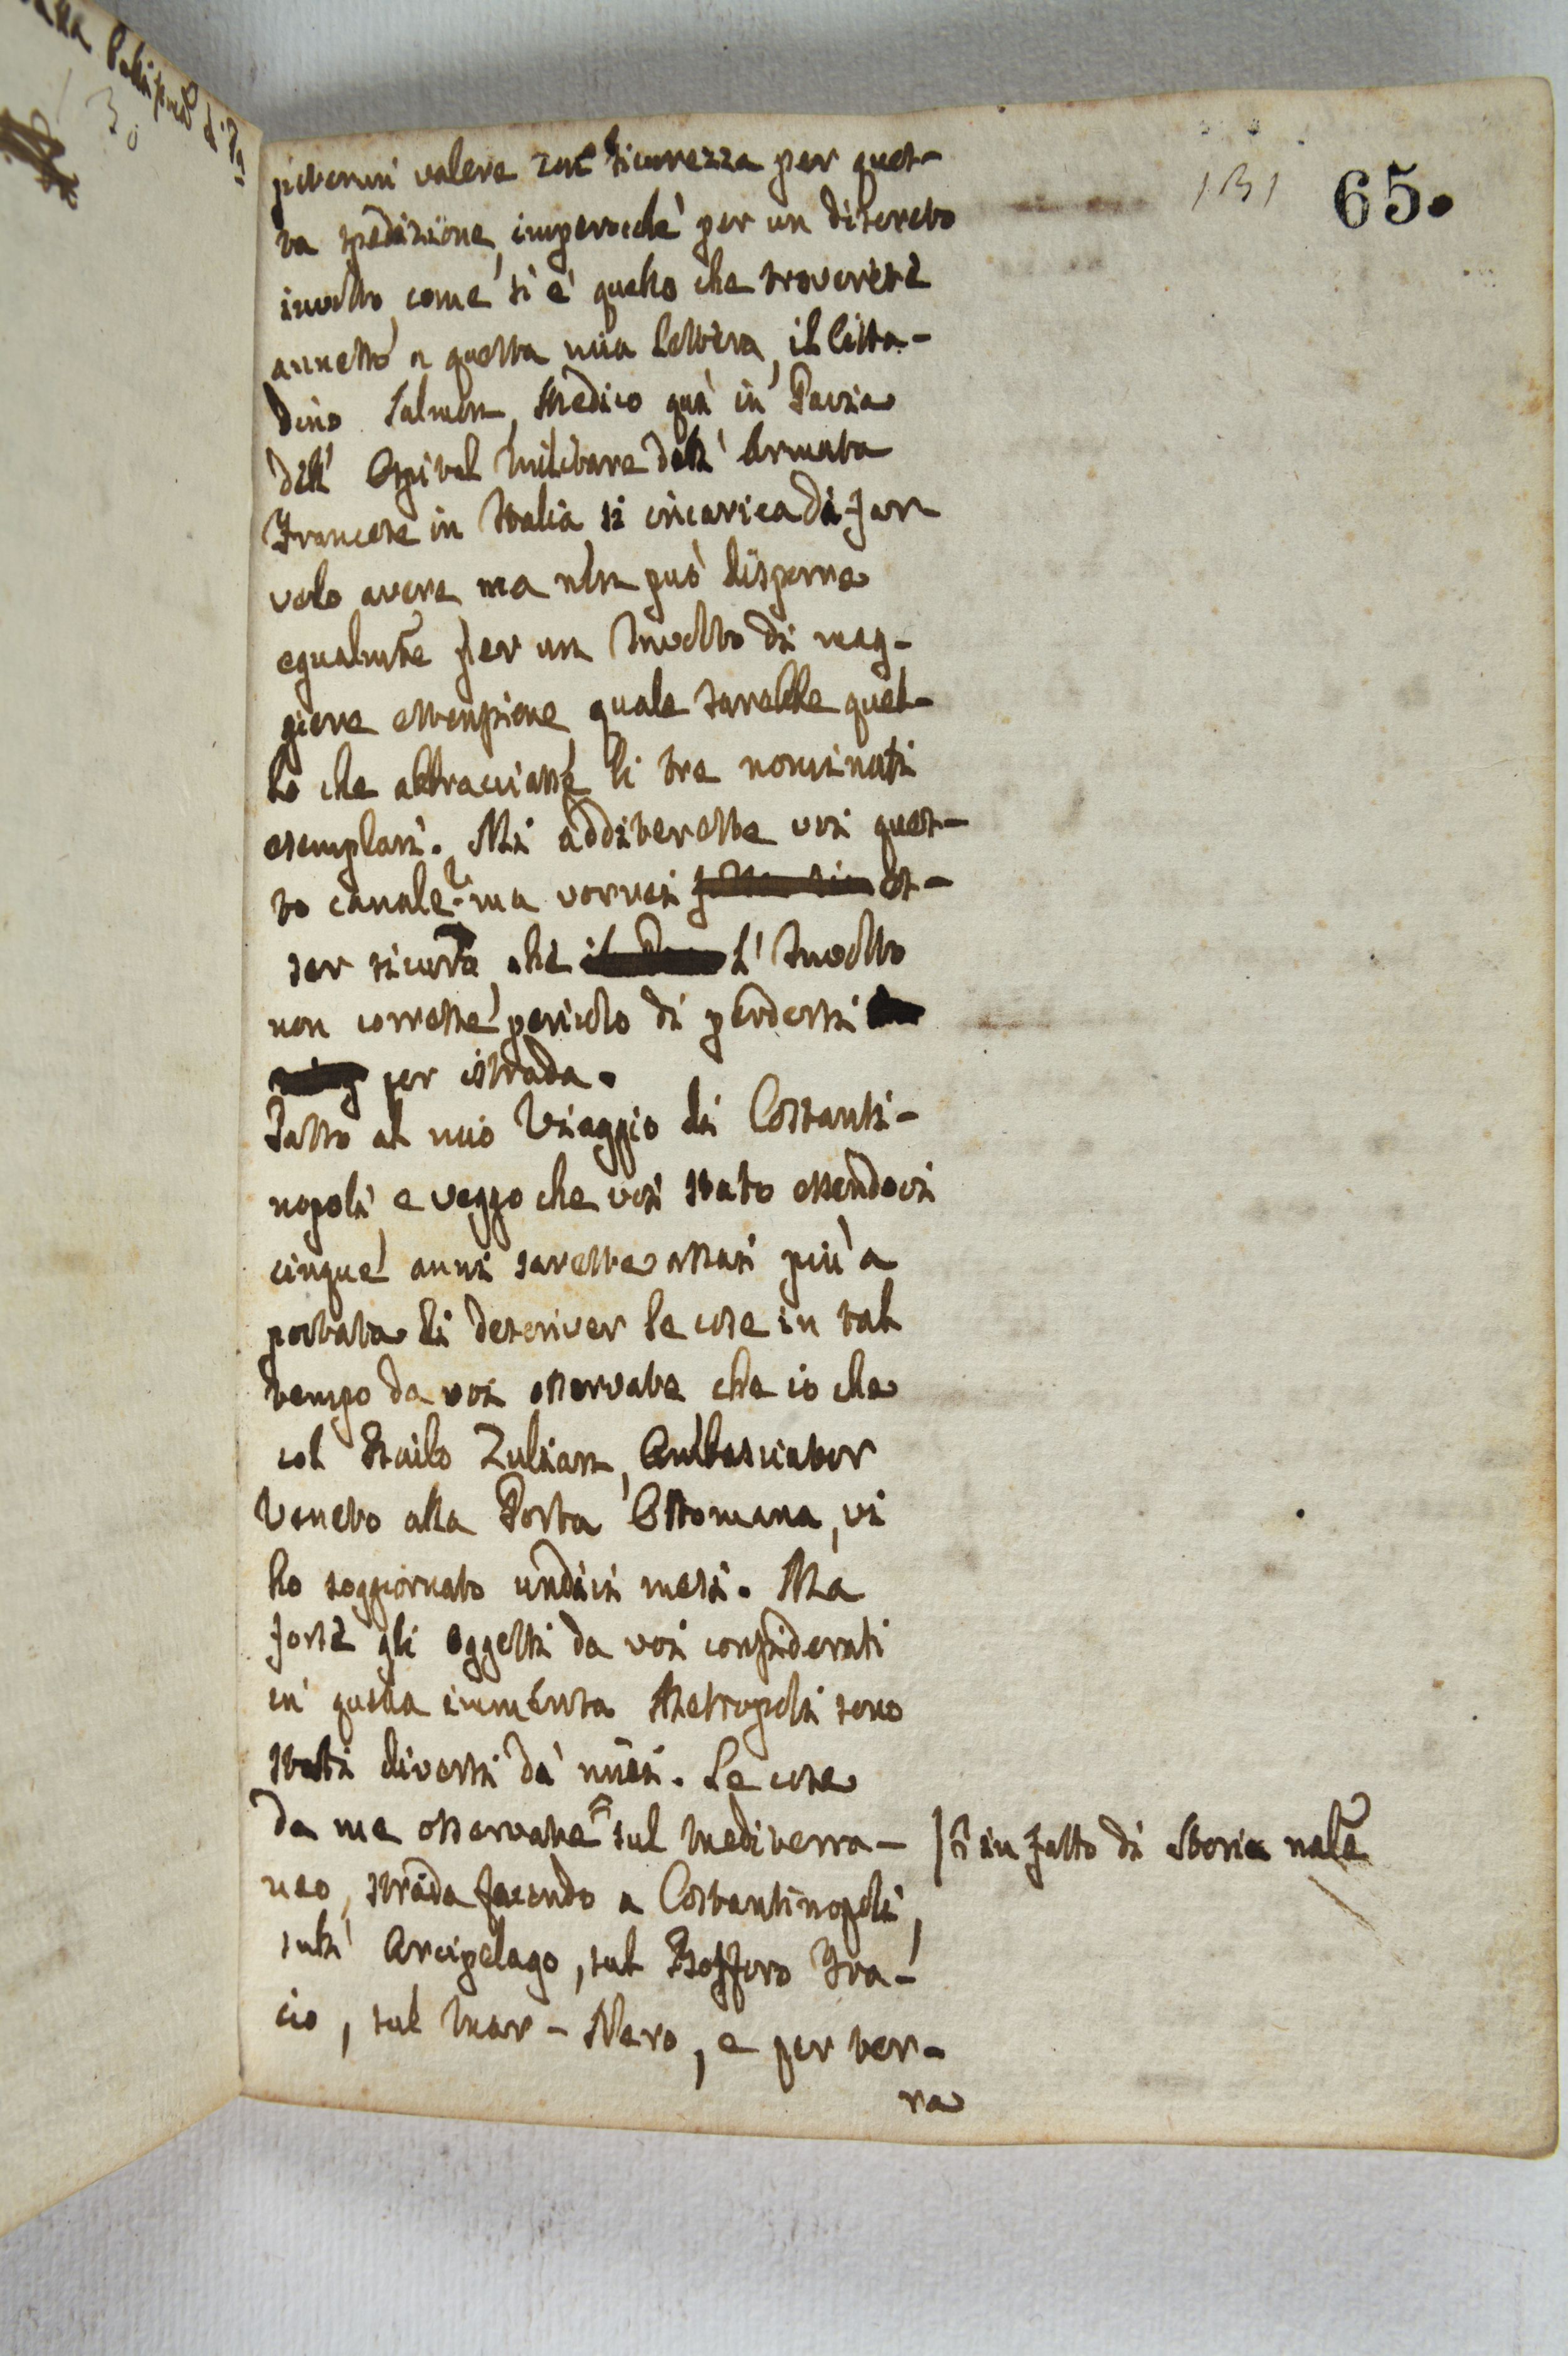 131 65.
potermi valere con sicurezza per ques-
ta spedizione, imperocchè per un discreto
involto, come si è quello che troverete
annesso a questa mia lettera, il Citta-
dino Salmon, Medico quà in Pavia
dell' Ospital Militare dell' Armata
Francese in Italia si incarica di far
velo avere, ma non può disporne
egualmte per un Involto di mag-
giore estensione, quale sarebbe quel-
lo che abbracciasse li tre nominati
esemplari. Mi additereste voi ques-
to canale? ma vorrei es-
ser sicuro, che l' Involto
non corresse pericolo di perdersi
per istrada.
Passo al mio Viaggio di Costanti-
nopoli, e veggo che voi stato essendovi
cinque anni sareste assai più a
portata di descriver le cose in tal
tempo da voi osservate che io che
col Bailo Zulian, Ambasciator
Veneto alla Porta Ottomana, vi
ho soggiornato undici mesi. Ma
forse gli oggetti da voi considerati
in quella immensa Metropoli sono
stati diversi da' miei. Le cose
da me osservate sul Mediterra-
in fatto di Storia nale
neo, strada facendo a Costantinopoli,
sull' Arcipelago, sul Bosforo Tra-
cio, sul Mar-Nero, e per ter-
ra